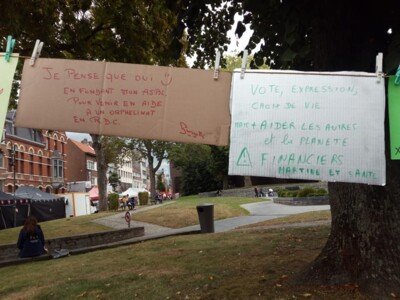 JE PENSE QUE OUI
EN FONDANT D'UN ASBL
POUR VENIR EN AIDE
À UN ORPHELINAT
EN R.D.C.
VOTE, EXPRESSION,
CHOIX DE VIE
+ AIDER LES AUTRES
et la PLANETE
FINANCIERS
MARTINE ET